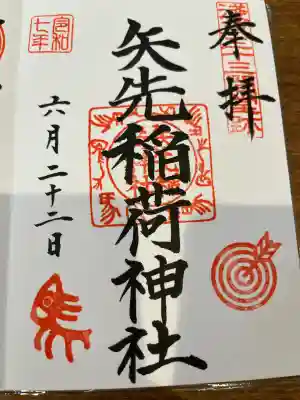 奉拝
矢先稲荷神社
令和
七年
六月二十二日